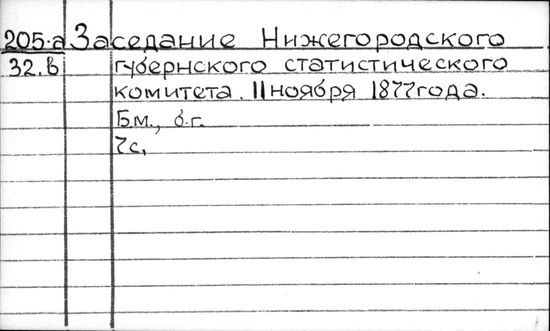 205-а Заседание Нижегородского
32.в губернского статистического
комитета. 11 ноября 1877 года.
Б.м., б.г.
7с.